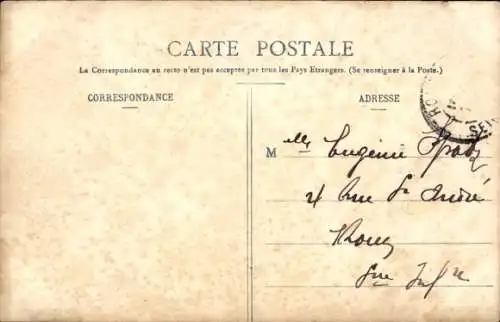 CARTE POSTALE
La Correspondance au recto n'est pas acceptée par tous les Pays Etrangers. (Se renseigner à la Poste.)
CORRESPONDANCE
ADRESSE
Melle Eugénie
4 Rue St André
Rouen
Sne Infre